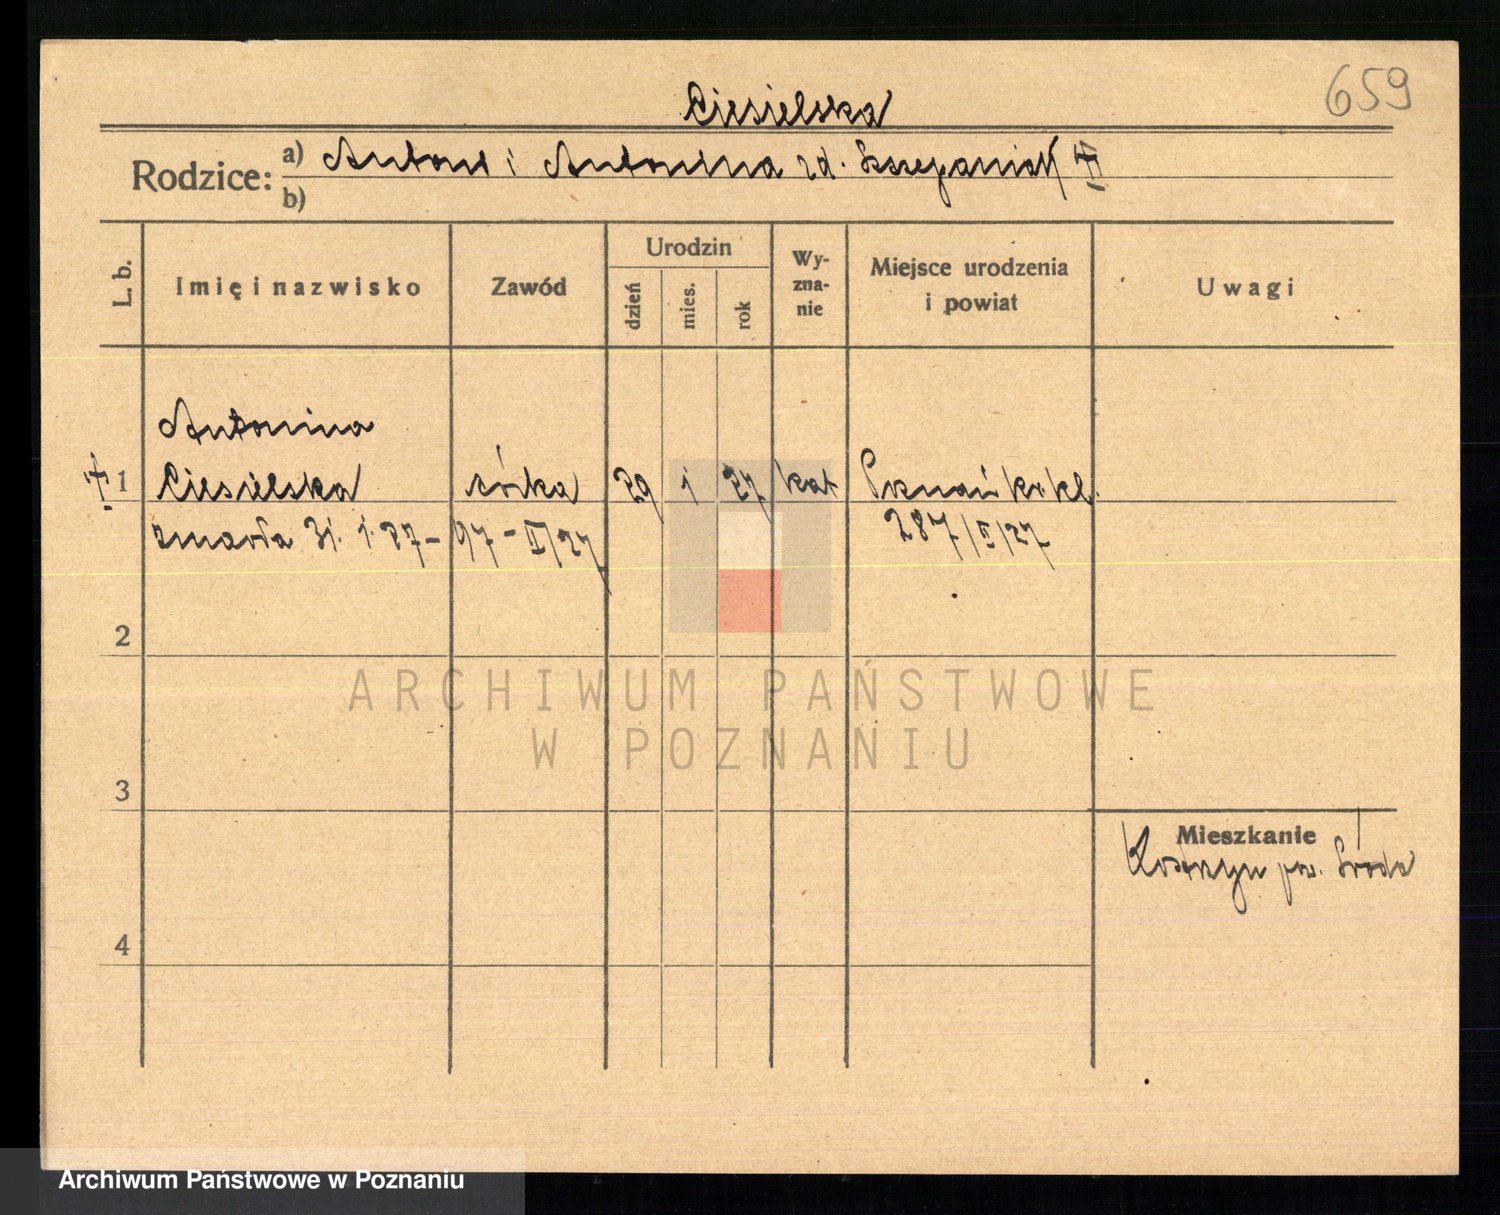 659
Ciesielska
Rodzice: a) Antoni i Antonina zd. Szczepaniak
b)
L. b.
Imię i nazwisko
Zawód
Urodzin
dzień
mies.
rok
Wy-
zna-
nie
Miejsce urodzenia
i powiat
Uwagi
Antonina
1 Ciesielska córka 29 1 27 kat Poznań
zmarła 31. 1. 27 - 97 - II/27 287/II/27
2
3
4
Mieszkanie
Kostrzyn pow. Środa
ARCHIWUM PAŃSTWOWE
W POZNANIU
Archiwum Państwowe w Poznaniu